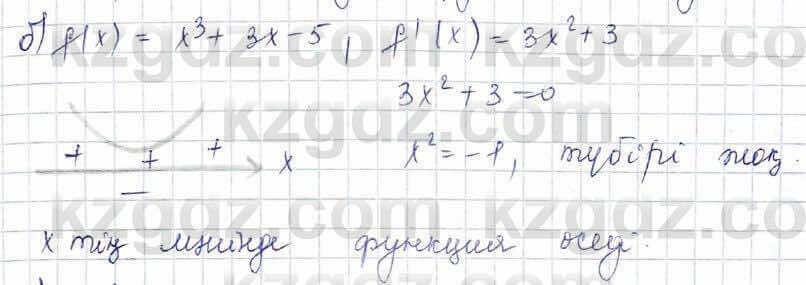 б) f(x) = x³ + 3x - 5, f'(x) = 3x² + 3
3x² + 3 = 0
+ + + x
x² = -1, түбірі жоқ.
—
x тің мәнінде функция өседі.
kzgdz.com
kzgdz.com
kzgdz.com
kzgdz.com
kzgdz.com